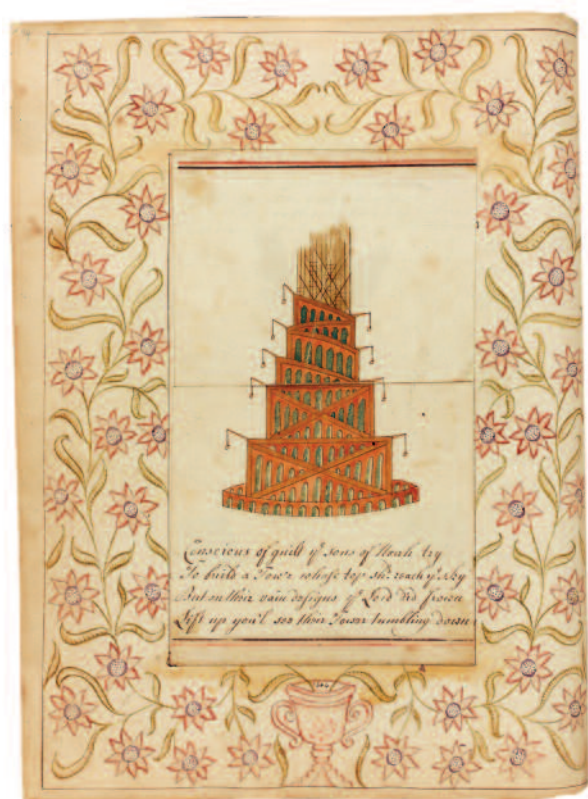 Conscious of guilt yᵉ sons of Noah try
To build a Towʳ whose top shᵈ reach yᵉ sky
But on their vain designs yᵉ Lord did frown
Lift up you'l see their Tower tumbling down